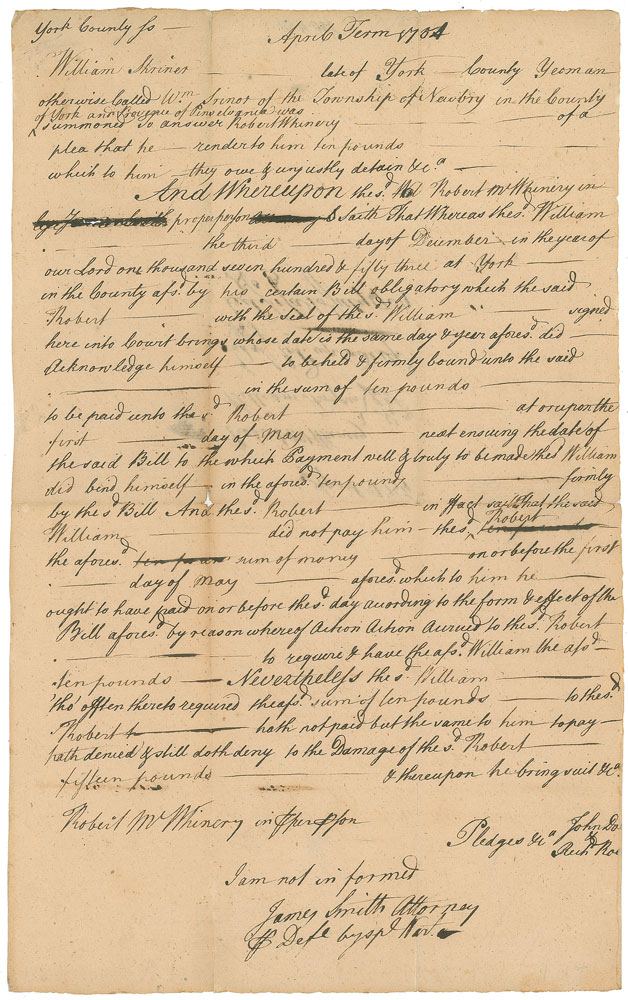 York County ss —
April Term 1754
William Shriner — late of York — County Yeoman
otherwise Called Wm Srinor of the Township of Newbry in the County
of York and Province of Penselvania was
summoned to answer Robert Whinery — of a —
plea that he — render to him ten pounds —
which to him — they owe & unjustly detain &ca —
And Whereupon the sd Robert McWhinery in
proper person saith That Whereas the sd William
— the third — day of December — in the year of
our Lord one thousand seven hundred & fifty three at York —
in the County afsd by his certain Bill obligatory which the said
Robert — with the seal of the sd William — signed
here into Court brings whose date is the same day & year aforesd did —
Acknowledge himself — to be held & firmly bound unto the said
— in the sum of ten pounds —
to be paid unto the sd Robert — at or upon the
first — day of May — next ensuing the date of
the said Bill to the which Payment well & truly to be made the sd William
did bind himself — in the aforesd ten pounds — firmly
by the sd Bill And the sd Robert — in fact saith that the said
William — did not pay him — the sd Robert
the aforesd sum of money — on or before the first
— day of May — aforesd which to him he —
ought to have paid on or before the sd day acording to the form & effect of the
Bill aforesd by reason whereof Action Action Acrued to the sd Robert
— to require & have the afsd William the afsd —
ten pounds — Nevertheless the sd William —
tho' often thereto required the afsd sum of ten pounds — to the sd
Robert — hath not paid but the same to him to pay —
hath denied & still doth deny to the Damage of the sd Robert —
fifteen pounds — & thereupon he brings suit &ca
Robert McWhinery in person
Pledges &ca John Do
&
Richd Roe
I am not in formed
James Smith Attorney
Deft by spl Wart